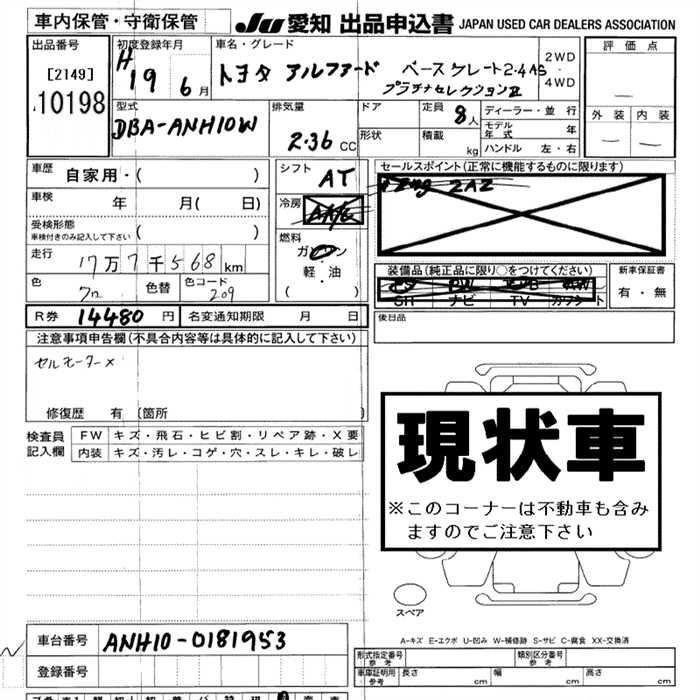 車内保管・守衛保管
JU 愛知 出品申込書 JAPAN USED CAR DEALERS ASSOCIATION
出品番号
[2149]
10198
初度登録年月
H19 6月
車名・グレード
トヨタ アルファード
ベースグレート2.4AS
プラチナセレクションⅡ
2WD
・
4WD
評価点
外装 内装
型式
DBA-ANH10W
排気量
2.36 CC
ドア
形状
定員 8人
積載 kg
ディーラー・並行
モデル年式 年
ハンドル 左・右
車歴 自家用・( )
車検 年 月( 日)
受検形態
車検付きのみ記入して下さい ( )
走行 17万7千568km
色 クロ 色替 色コード 209
シフト AT
冷房
燃料
ガソリン
・
軽・油
( )
セールスポイント(正常に機能するものに限ります)
装備品(純正品に限り○をつけてください)
新車保証書
有・無
R券 14480円 名変通知期限 月 日
後日品
注意事項申告欄(不具合内容等は具体的に記入して下さい)
セルモーター×
修復歴 有 〔箇所 〕
検査員記入欄
FW キズ・飛石・ヒビ割・リペア跡・X要
内装 キズ・汚レ・コゲ・穴・スレ・キレ・破レ
現状車
※このコーナーは不動車も含み
ますのでご注意下さい
スペア
A-キズ E-エクボ U-凹み W-補修跡 S-サビ C-腐食 XX-交換済
車台番号 ANH10-0181953
登録番号
形式指定番号
参考
類別区分番号
参考
車庫証明用
参考
長さ cm 幅 cm 高さ cm